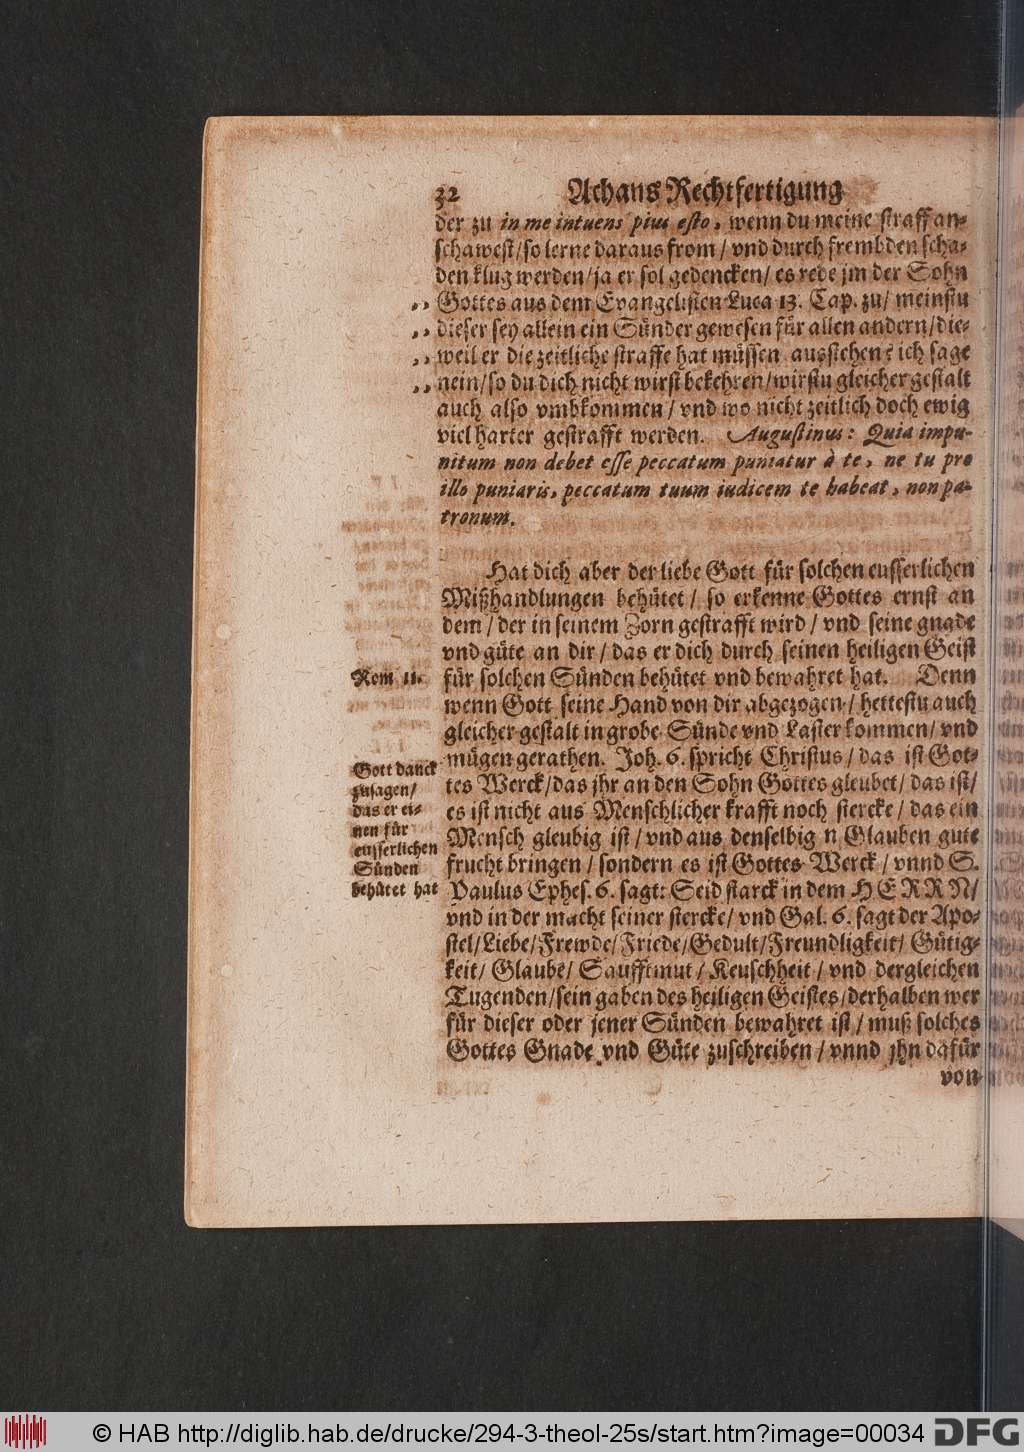 32 Achans Rechtfertigung
der zu in me intuens pius esto, wenn du meine straff an-
schawest/so lerne daraus from/ vnd durch frembden scha-
den klug werden/ja er sol gedencken/ es rede jm der Sohn
,, Gottes aus dem Evangelisten Luca 13. Cap. zu/ meinstu
,, dieser sey allein ein Sünder gewesen für allen andern/die-
,, weil er die zeitliche straffe hat müssen ausstehen? ich sage
,, nein/so du dich nicht wirst bekehren/wirstu gleicher gestalt
auch also vmbkommen/ vnd wo nicht zeitlich doch ewig
viel harter gestrafft werden. Augustinus: Quia impu-
nitum non debet esse peccatum puniatur à te, ne tu pro
illo puniaris, peccatum tuum iudicem te habeat, non pa-
tronum.
Hat dich aber der liebe Gott für solchen eusserlichen
Mißhandlungen behütet/ so erkenne Gottes ernst an
dem/ der in seinem Zorn gestrafft wird/ vnd seine gnade
vnd güte an dir/ das er dich durch seinen heiligen Geist
Rom 11. für solchen Sünden behütet vnd bewahret hat. Denn
wenn Gott seine Hand von dir abgezogen/ hettestu auch
gleicher gestalt in grobe Sünde vnd Laster kommen/ vnd
mügen gerathen. Joh. 6. spricht Christus/ das ist Got-
tes Werck/das jhr an den Sohn Gottes gleubet/ das ist/
es ist nicht aus Menschlicher krafft noch stercke/ das ein
Mensch gleubig ist/ vnd aus denselbig n Glauben gute
frucht bringen/ sondern es ist Gottes Werck/ vnnd S.
Paulus Ephes. 6. sagt: Seid starck in dem HERRN/
vnd in der macht seiner stercke/ vnd Gal. 6. sagt der Apo-
stel/Liebe/Frewde/Friede/Gedult/Freundligkeit/ Gütig-
keit/ Glaube/ Saufftmut/ Keuschheit/ vnd dergleichen
Tugenden/sein gaben des heiligen Geistes/derhalben wer
für dieser oder jener Sünden bewahret ist/ muß solches
Gottes Gnade vnd Güte zuschreiben/ vnnd jhn dafür
von
Gott danck
zusagen/
das er ei-
nen für
eusserlichen
Sünden
behütet hat
© HAB http://diglib.hab.de/drucke/294-3-theol-25s/start.htm?image=00034 DFG